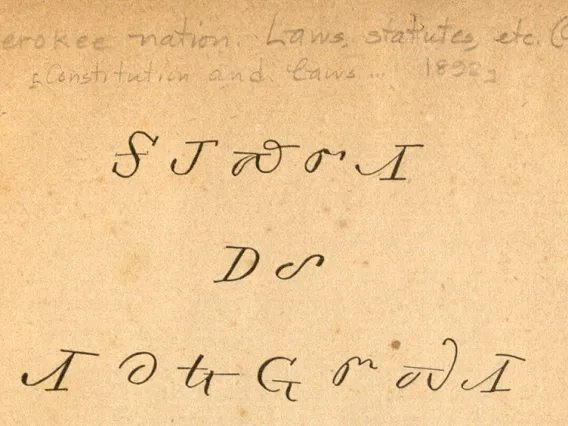 erokee nation. Laws, statutes, etc. (
[Constitution and Laws ... 1892]
ᎦᎫᏍᏛᏗ
ᎠᎴ
ᏗᎧᎿᏩᏛᏍᏗ